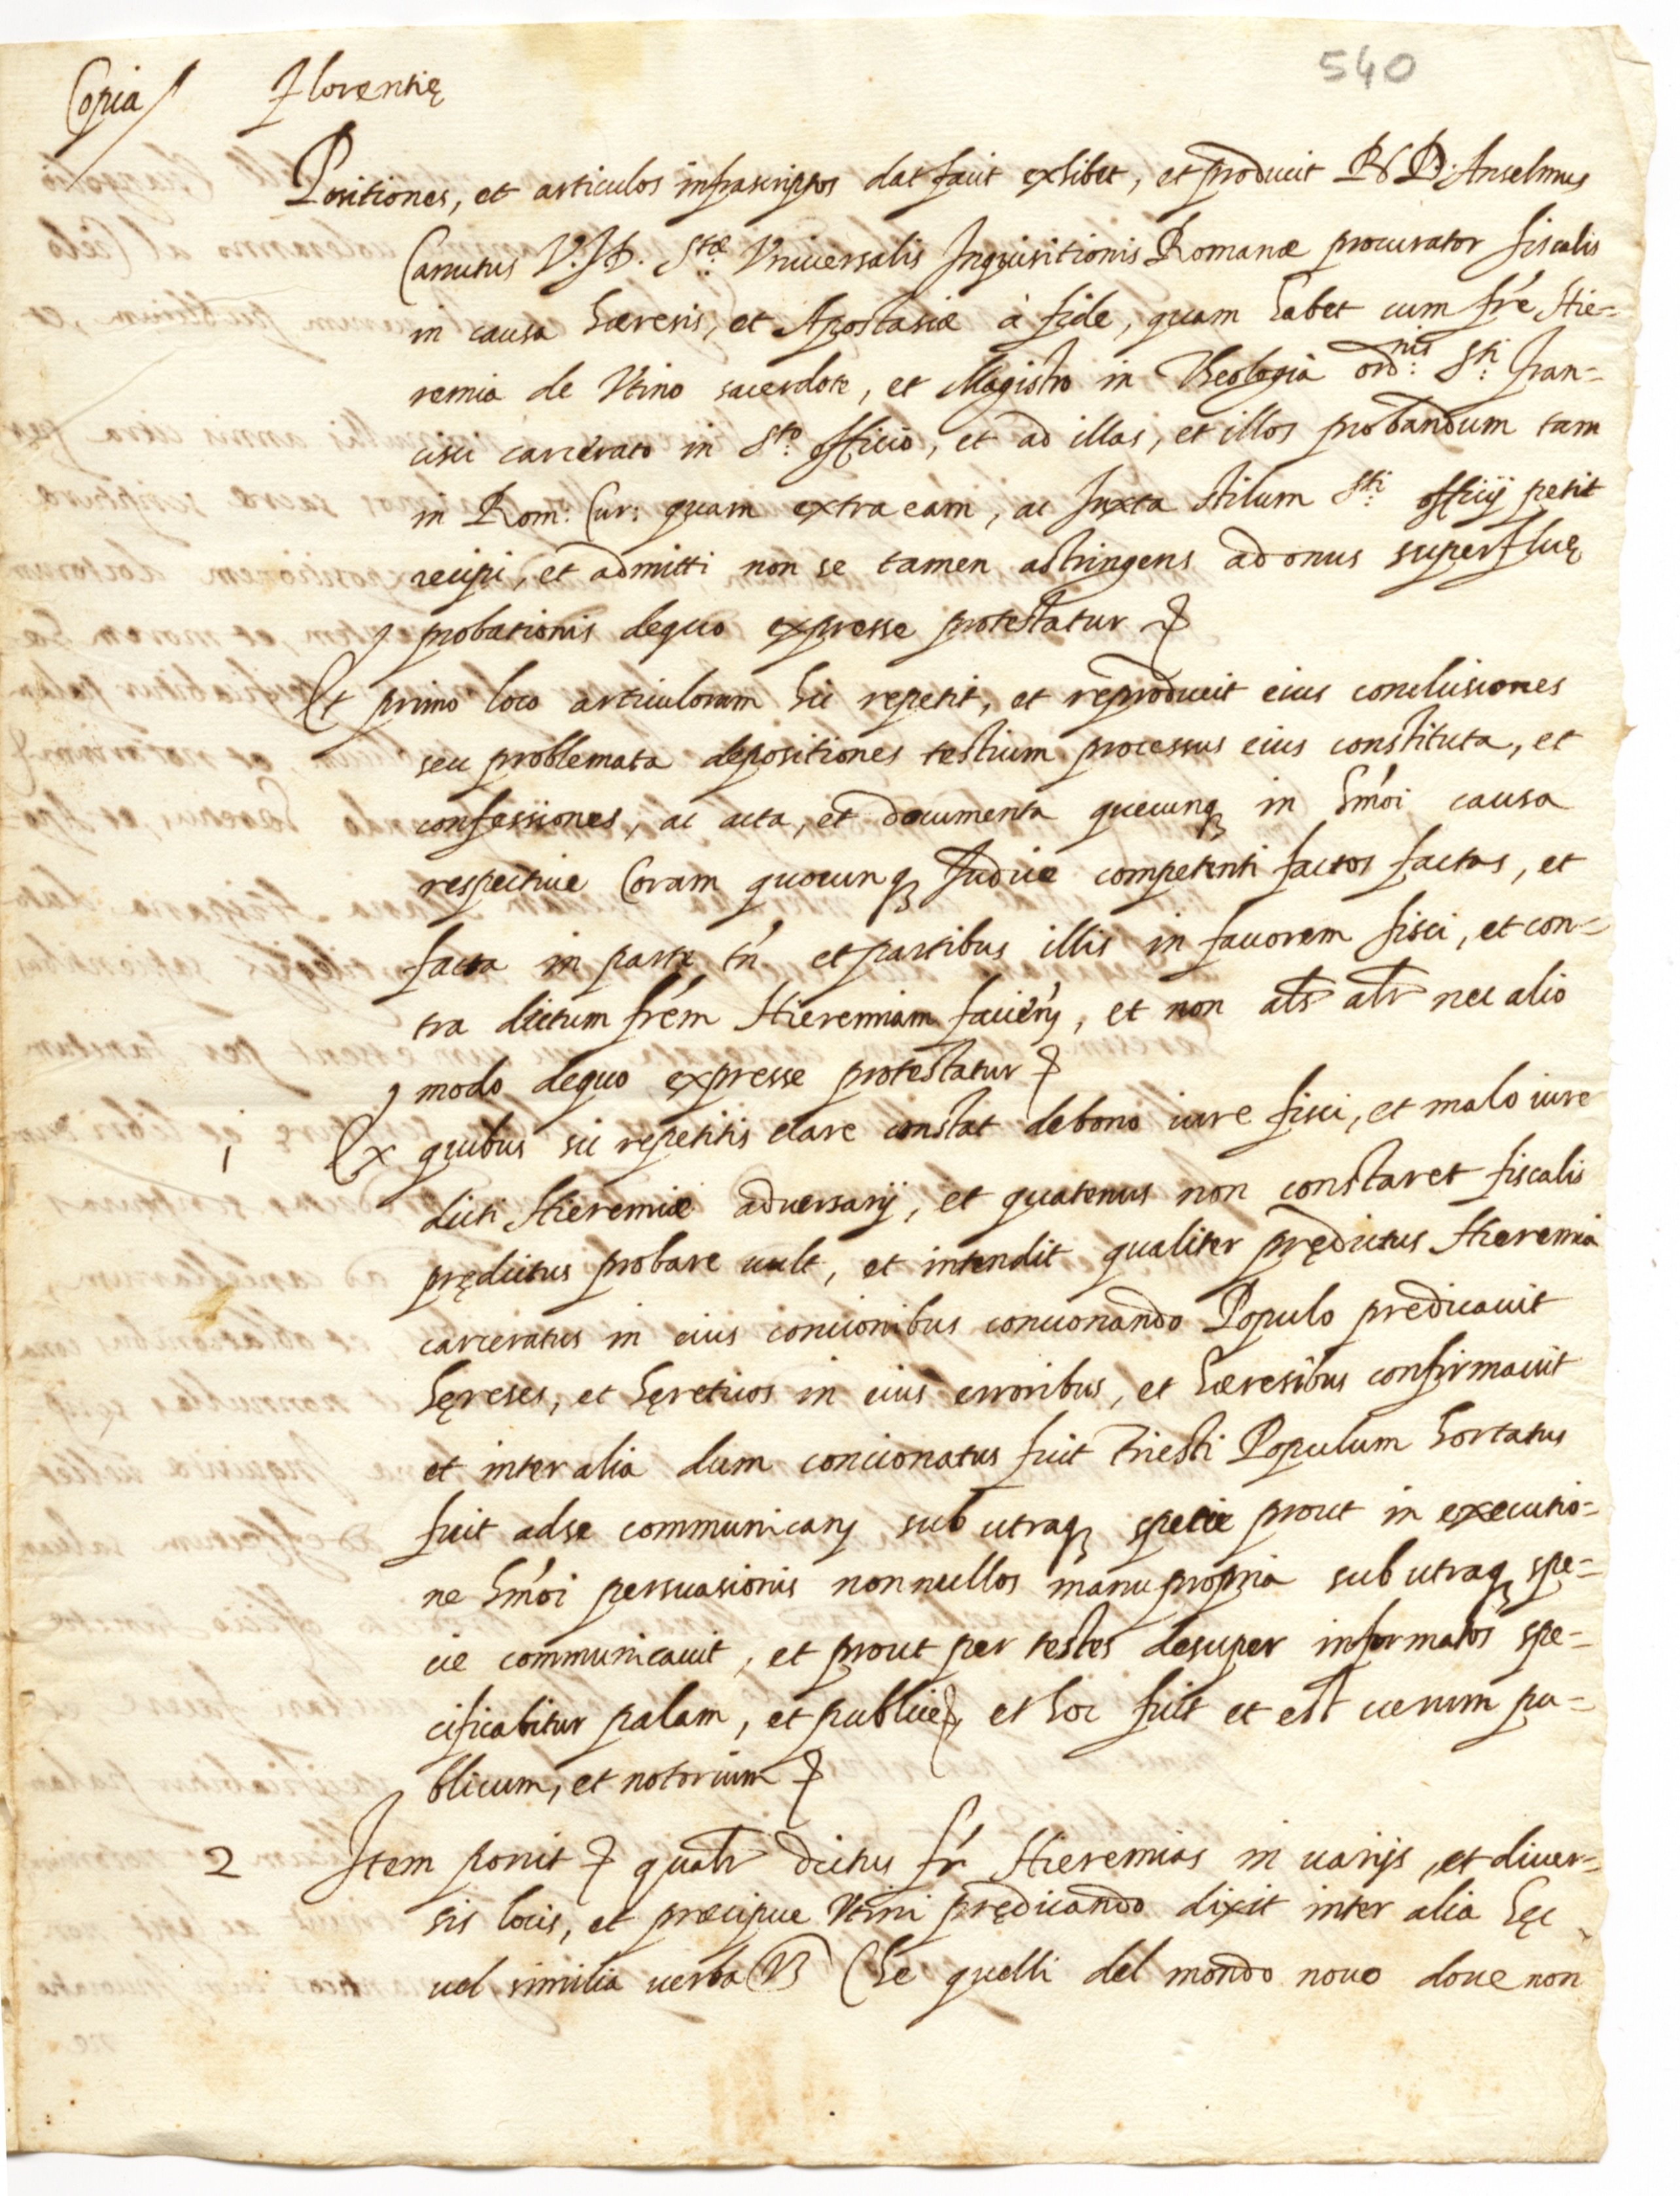 540
Copia
Florentię
Positiones, et articulos infrascriptos dat facit exhibet, et producit R.D. Anselmus
Canutus V.J.D. S.tæ Vniuersalis Inquisitionis Romanæ procurator fiscalis
in causa hæresis, et Apostasiæ à fide, quam habet cum fr̃e Hie=
remia de Vtino sacerdote, et Magistro in Theologia ord:nis S.ti Fran=
cisci carcerato in S.to officio, et ad illas, et illos probandum tam
in Rom: Cur: quam extra eam, ac Juxta stilum S.ti officij petit
recipi, et admitti non se tamen astringens ad onus superfluę
probationis dequo expresse protestatur
Et primo loco articulorum hic repetit, et reproducit eius conclusiones
seu problemata depositiones testium processus eius constituta, et
confessiones, ac acta, et documenta quecunq; in hm̃oi causa
respectiue Coram quocunq; Judice competenti factos factas, et
facta in parte tñ et partibus illis in fauorem fisci, et con=
tra dictum fr̃em Hieremiam facieñ, et non als̃ alr̃ nec alio
modo dequo expresse protestatur
i Ex quibus sic repetitis clare constat debono iure fisci, et malo iure
dicti Hieremiæ aduersarij, et quatenus non constaret fiscalis
prędictus probare uult, et intendit qualiter prędictus Hieremia
carceratus in eius concionibus concionando Populo predicauit
hęreses, et hęreticos in eius erroribus, et hæresibus confirmauit
et inter alia dum concionatus fuit Triesti Populum hortatus
fuit adse communicanj sub utraq; specie prout in executio=
ne hm̃oi persuasionis nonnullos manupropria sub utraq; spe=
cie communicauit, et prout per testes desuper informatos spe=
cificabitur palam, et publice, et hoc fuit et est uerum pu=
blicum, et notorium
2 Item ponit qualr̃ dictus fr̃ Hieremias in varijs, et diuer=
sis locis, et præcipue Vtini prędicando dixit inter alia hęc
uel similia uerba Che quelli del mondo nouo doue non